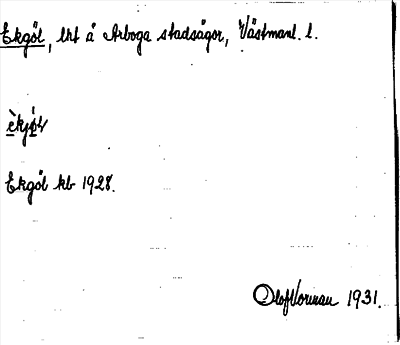 Ekgöl, lht å Arboga stadsägor, Västmanl. l.
Ekgöl kb 1928.
Olof Norman 1931.